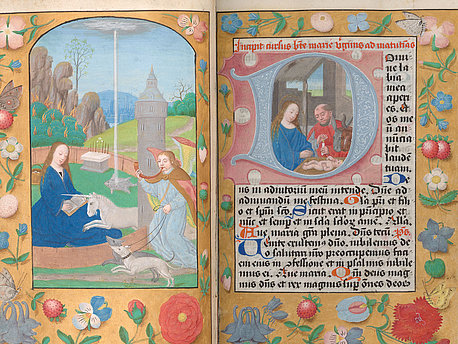 Incipit cursus bte marie virginis ad matutinas
Domine
labia
mea
aperi
es. Et
os me
um an
nuncia
bit
laudem
tuam.
Deus in adiutoriū meū intende. Dñe ad
adiuvandū me festina. Gła p̄ri et fi
lio et spūi sco. Sicut erat in principio et
nūc et semp et in scła sclōꝝ amē. Alla.
Aue maria grā plena. Dñs tecū. ps.
Uenite exultem̄ dño. iubilemus deo
salutari nr̄o preocupemus fa
ciem eius in ꝯfessione et in psalmis iubile
mus ei. Aue maria. Qm̄ deus mag
nus dñs et rex magnus sup om̄s deos